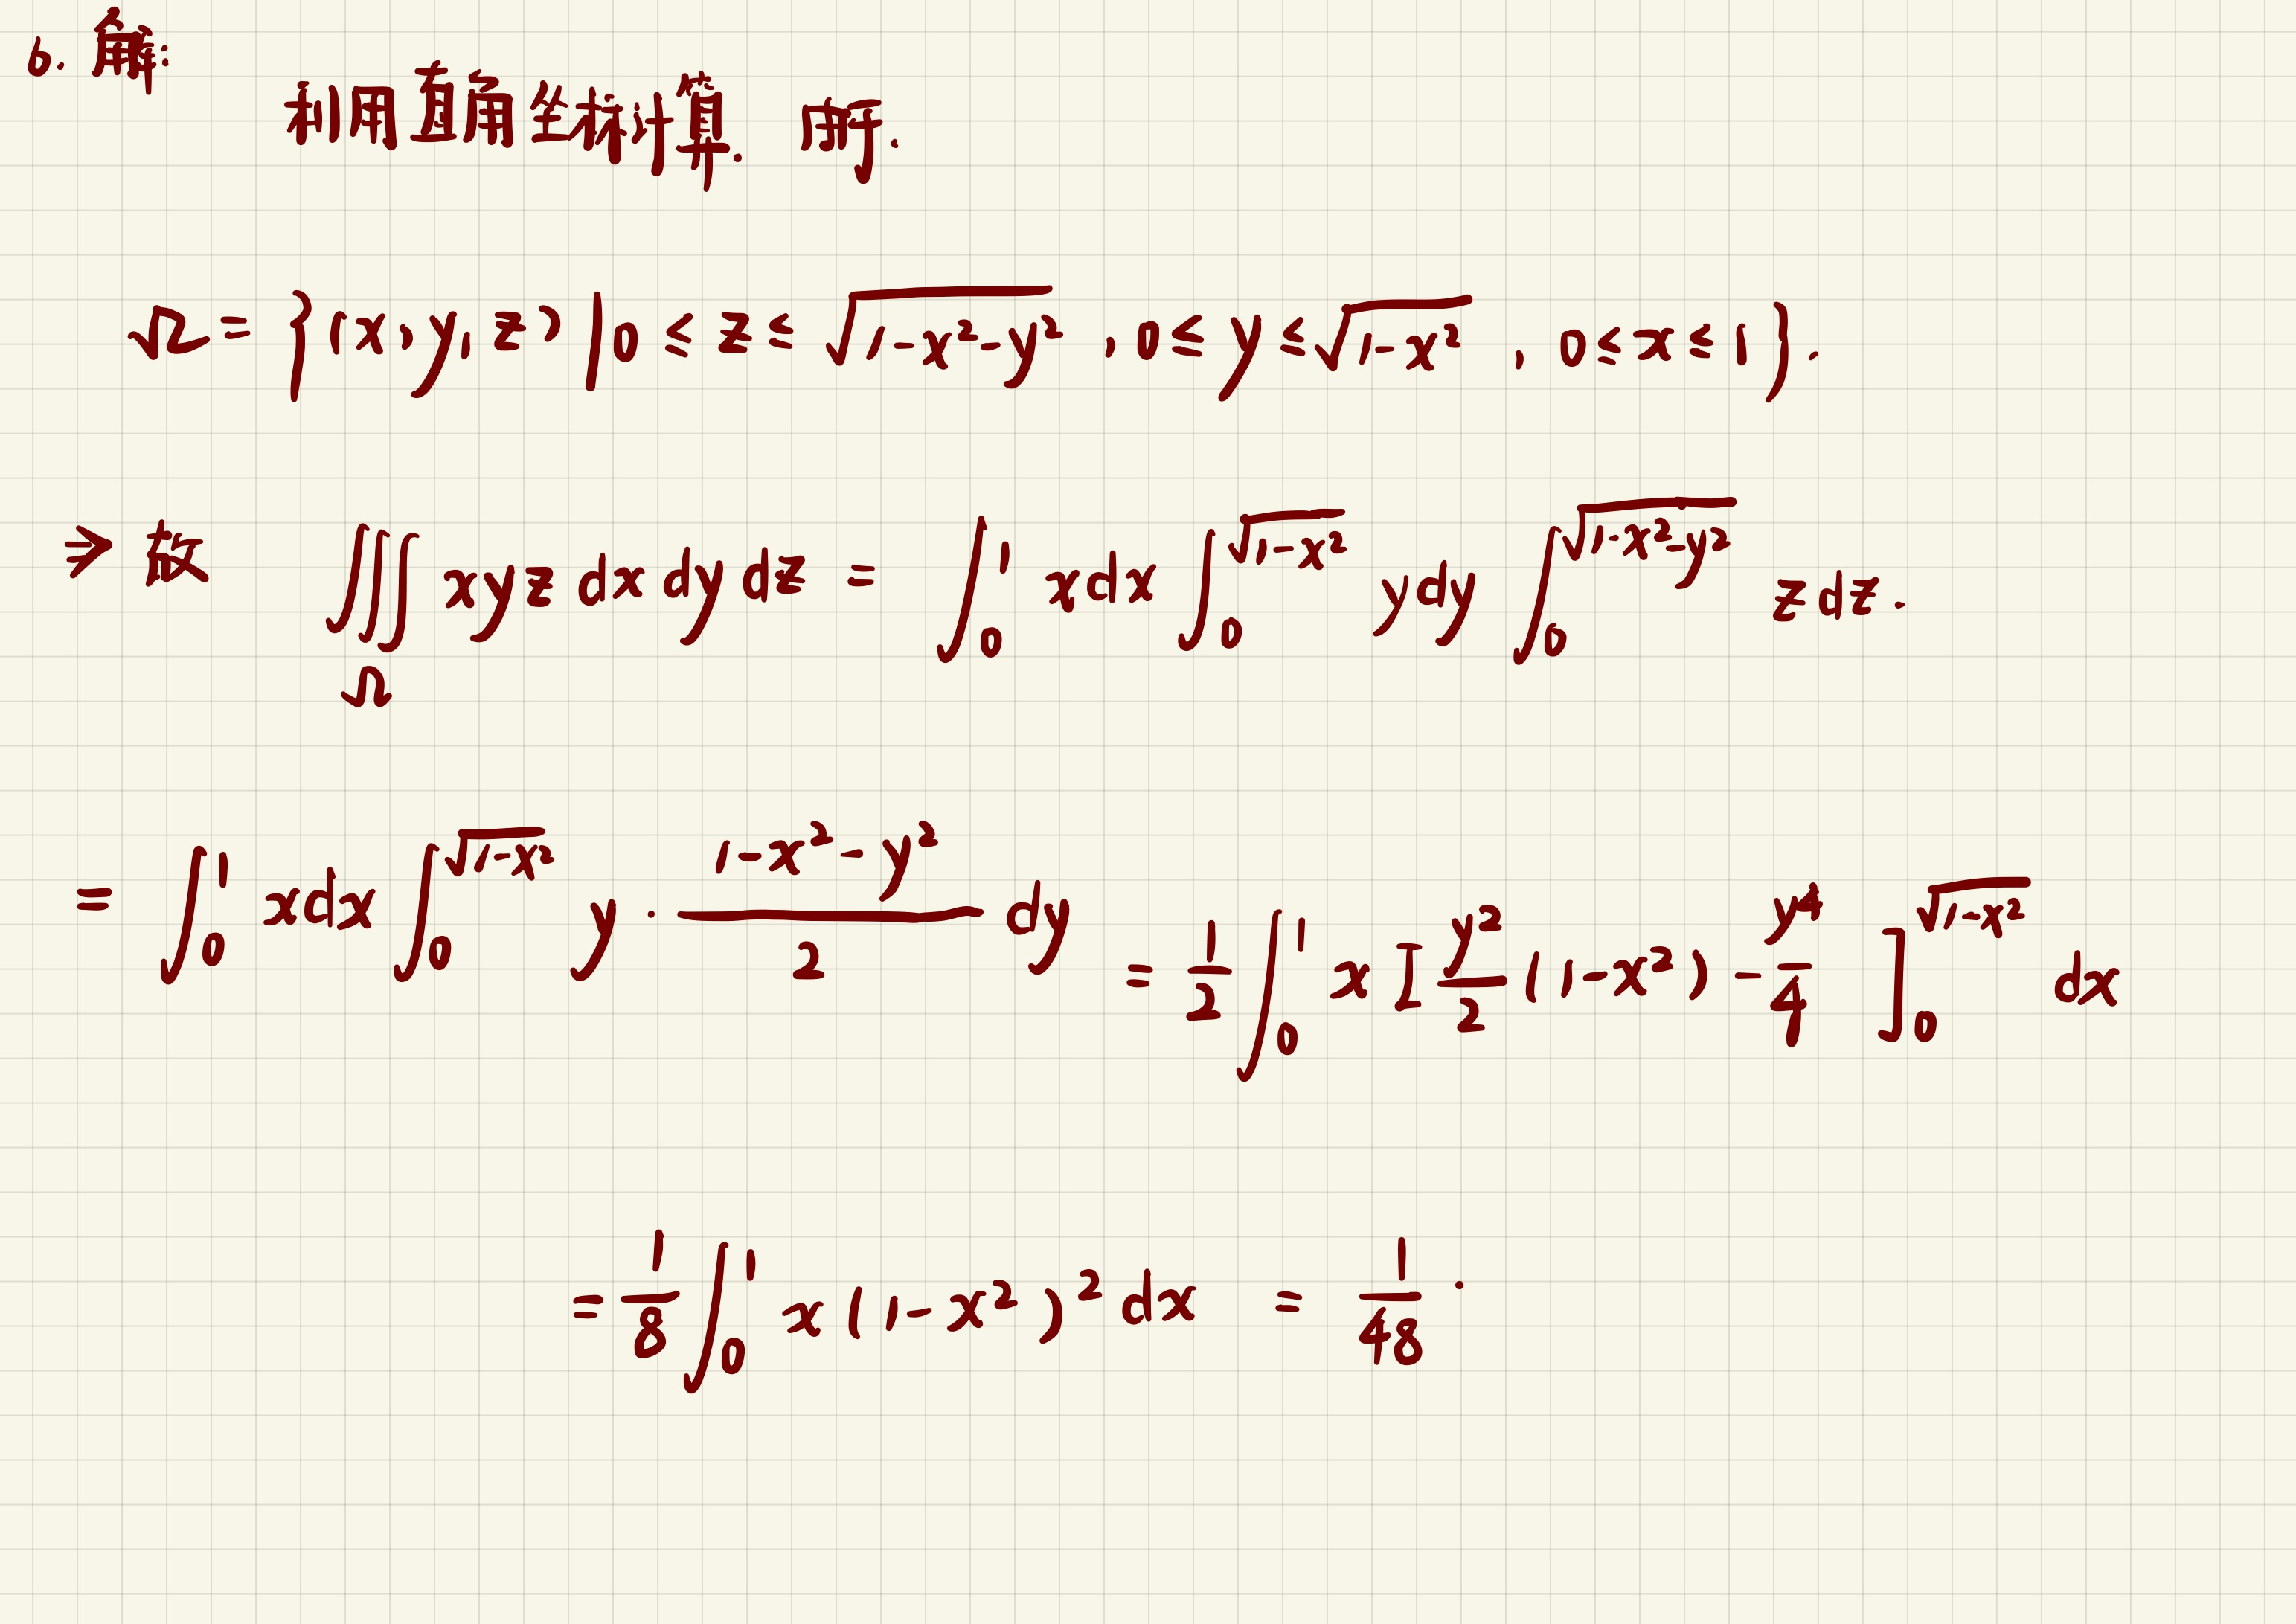 6. 解:
利用直角坐标计算. 由于.
Ω = {(x, y, z) | 0 ≤ z ≤ √(1-x²-y²) , 0 ≤ y ≤ √(1-x²) , 0 ≤ x ≤ 1}.
⇒ 故 ∭_Ω xyz dx dy dz = ∫₀¹ xdx ∫₀^√(1-x²) ydy ∫₀^√(1-x²-y²) zdz.
= ∫₀¹ xdx ∫₀^√(1-x²) y · (1-x²-y²)/2 dy = 1/2 ∫₀¹ x [ y²/2 (1-x²) - y⁴/4 ]₀^√(1-x²) dx
= 1/8 ∫₀¹ x(1-x²)² dx = 1/48 .